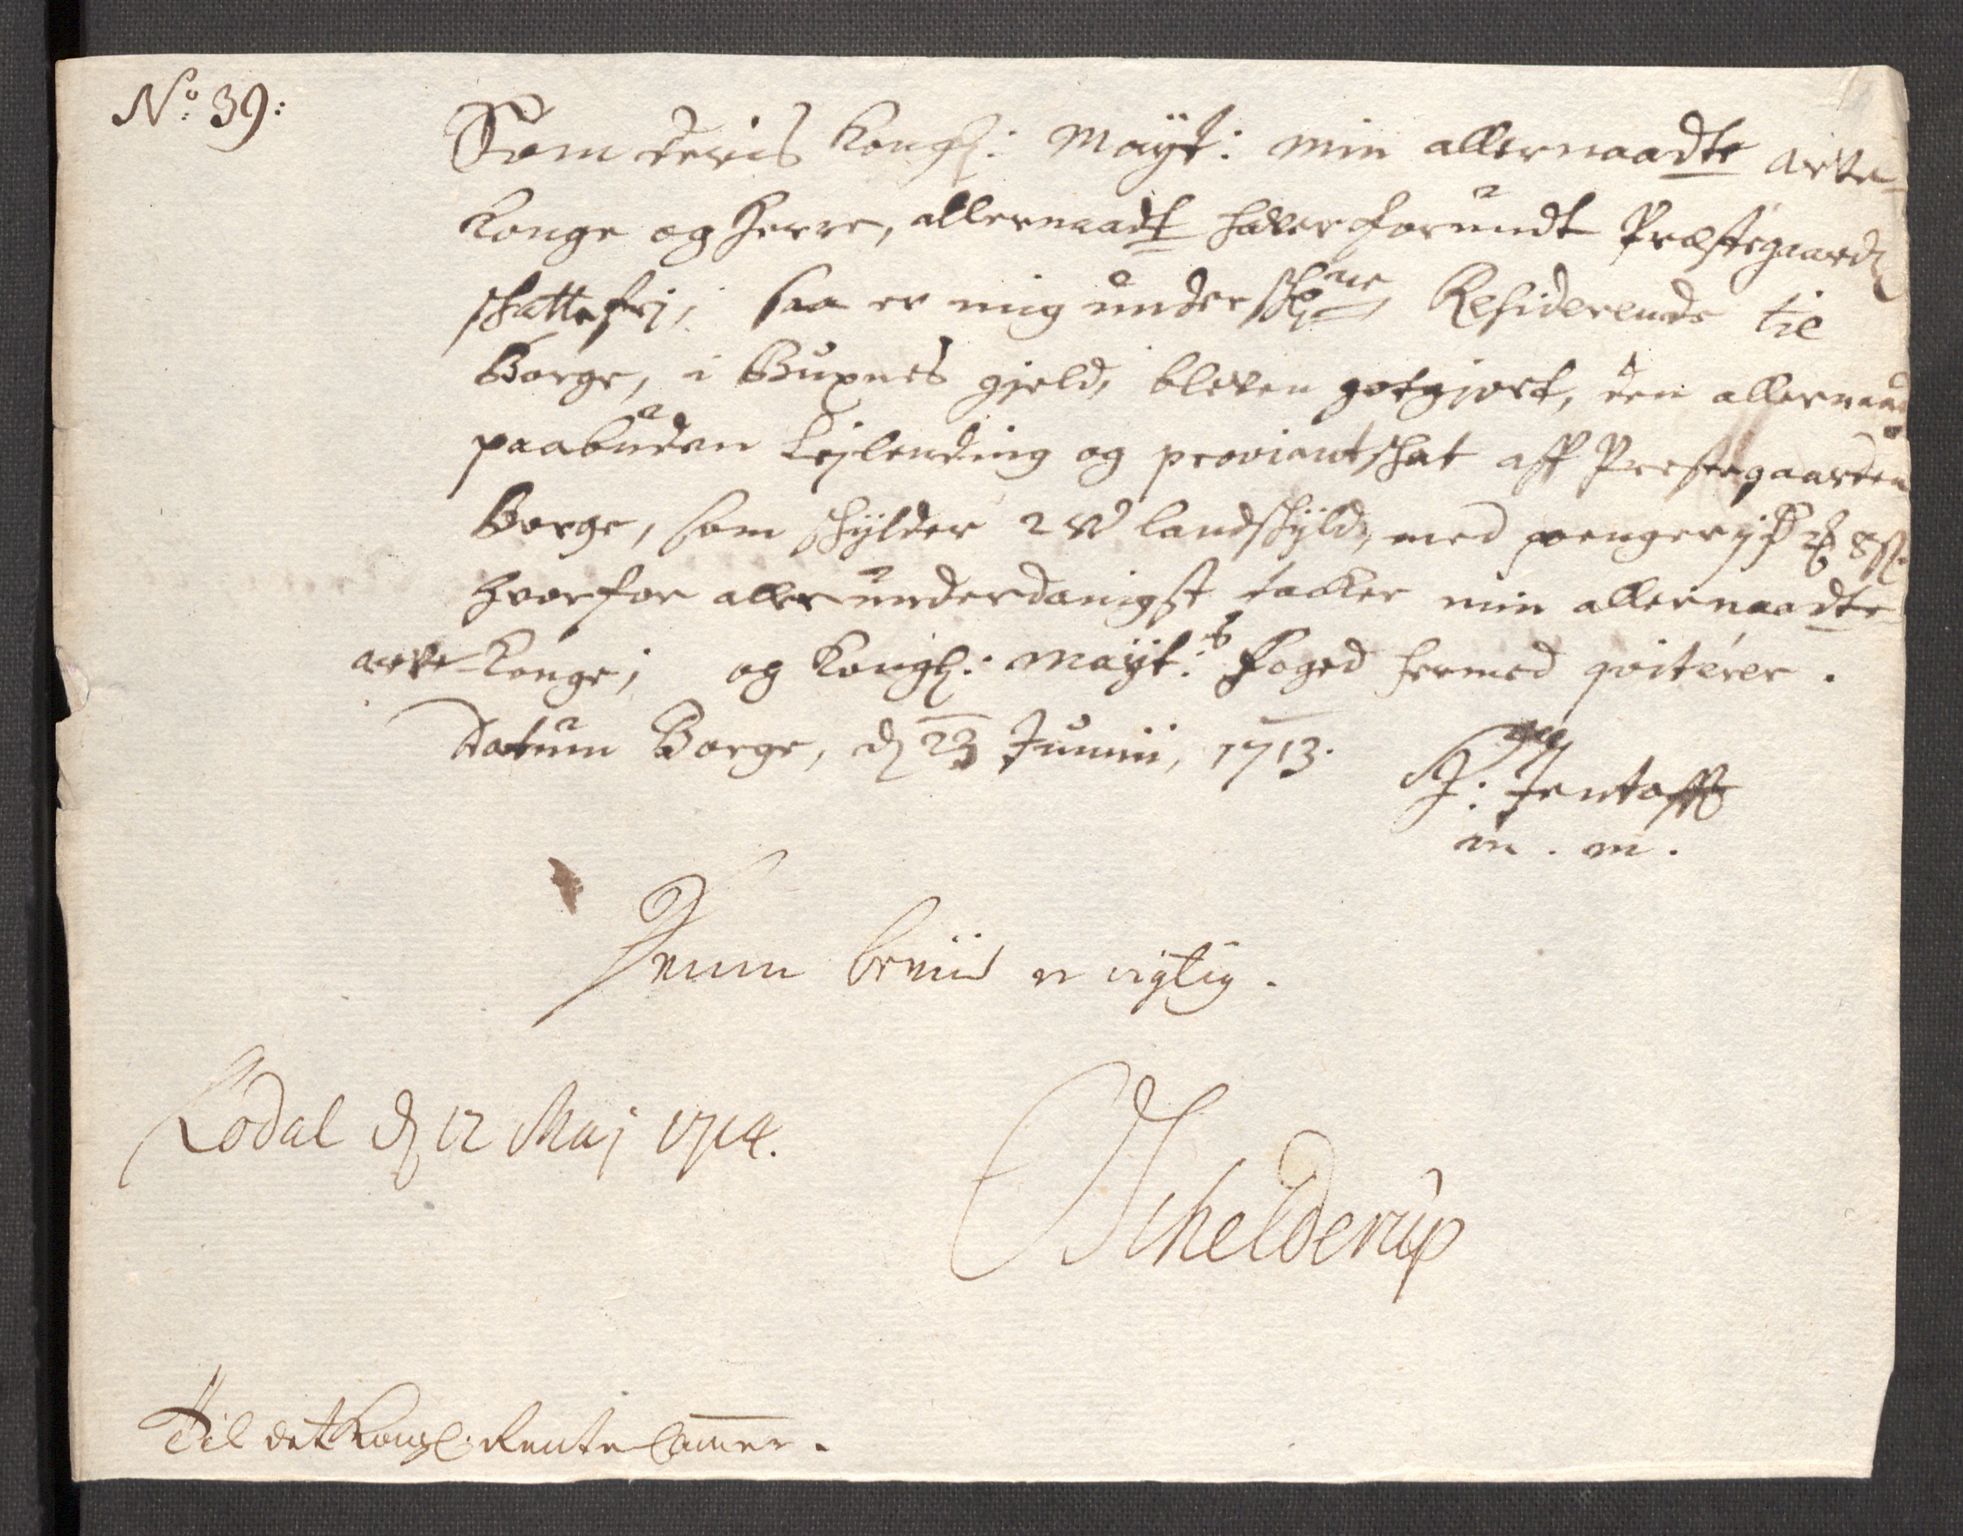 No: 39:
Som deris Kongl: Mayt: min allernaadte arve-
Konge og Herre, allernaadt haver forundt Præstegaard
schattefri, saa er mig underschne Residerende til
Borge, i Buxnes gjeld, bleven gotgjort, den allernaad
paabuden Lejlending og proviantschat aff Prestegaarden
Borge, som schylder 2 W landschyld, med penger
hvorfor allerunderdanigst tacker min allernaadte
arve-Konge; og Kongl: Mayt:s Foged hermed qviterer.
Datum Borge, d 23 Junii, 1713.
Jentofft
m. m.
Denne breiis er rigtig.
Lødal d 12 Maj 1714.
Schelderup
Til det Kongl: Rente Cammer.